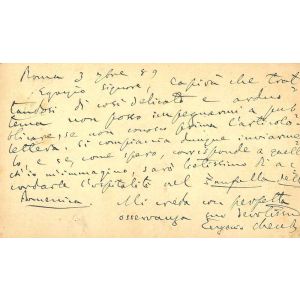 Roma 3 9bre 89
Egregio signore, capirà che trat
tandosi di così delicato e arduo
tema non posso impegnarmi a pub
blicare, se non conosco prima l'articolo
lettera, si compiaccia dunque inviarme
lo, e se, come spero, corrisponde a quello
ch'io m'immagino, sarò lietissimo di ac
cordarle l'ospitalità nel Fanfulla della
Domenica
Mi creda con perfetta
osservanza suo devotissimo